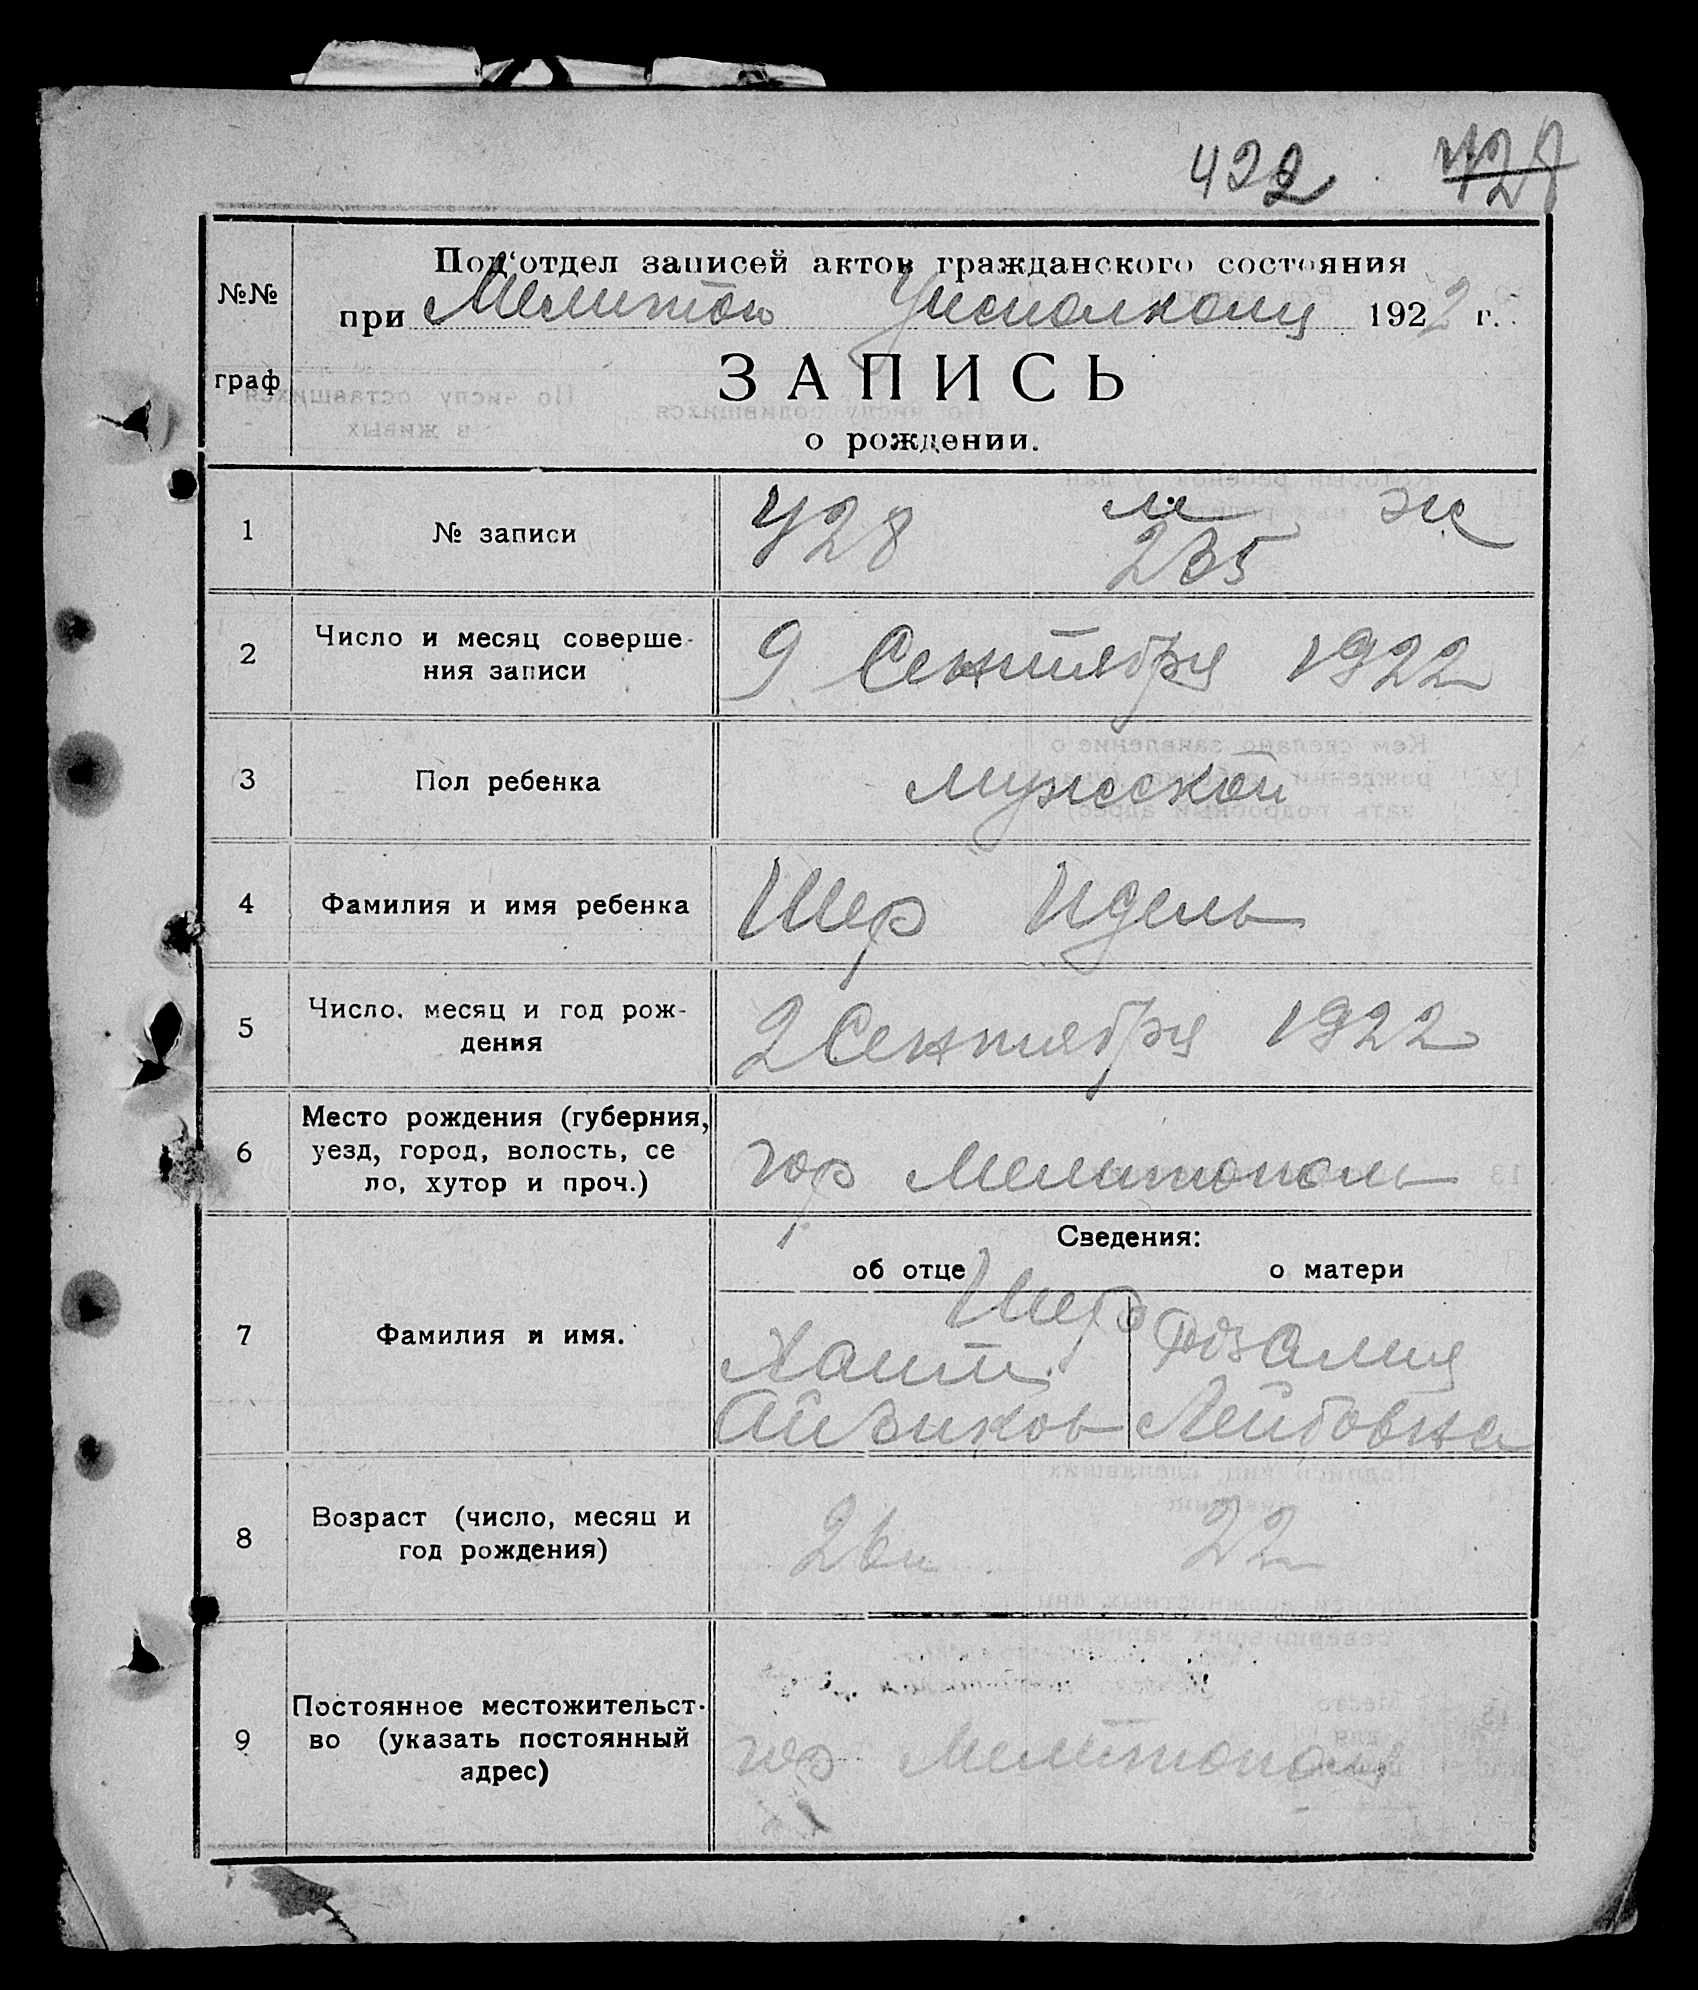 422 428
Под'отдел записей актов гражданского состояния
№№
при Мелитоп Уисполкоми 1922 г.
граф
ЗАПИСЬ
о рождении.
1 № записи 428 м ж
235
2 Число и месяц соверше-
ния записи
9 Сентября 1922
3 Пол ребенка мужской
4 Фамилия и имя ребенка Шер Идель
5 Число, месяц и год рож-
дения
2 Сентября 1922
6 Место рождения (губерния,
уезд, город, волость, се
ло, хутор и проч.)
гор Мелитополь
Сведения:
об отце о матери
7 Фамилия и имя.
Шер
Розалия
Айзиков Лейбовна
8 Возраст (число, месяц и
год рождения)
26 22
9 Постоянное местожительст-
во (указать постоянный
адрес)
гор Мелитополь